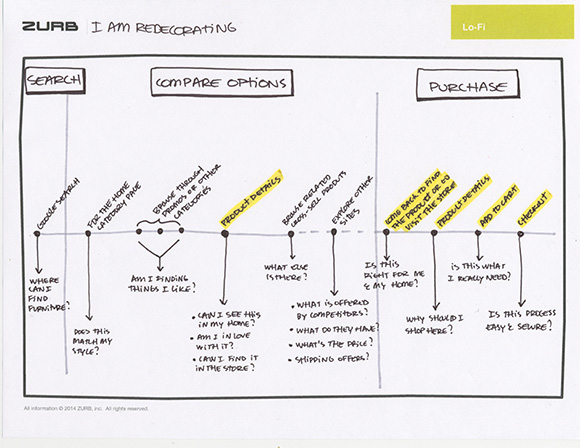 ZURB | I AM REDECORATING
Lo-Fi
SEARCH
COMPARE OPTIONS
PURCHASE
GOOGLE SEARCH
FOR THE HOME
CATEGORY PAGE
BROWSE THROUGH
PROMOS OR OTHER
CATEGORIES
PRODUCT DETAILS
BROWSE RELATED
CROSS-SELL PRODUTS
EXPLORE OTHER
SITES
COME BACK TO FIND
THE PRODUCT OR GO
VISIT THE STORE
PRODUCT DETAILS
ADD TO CART
CHECKOUT
WHERE
CAN I
FIND
FURNITURE?
DOES THIS
MATCH MY
STYLE?
AM I FINDING
THINGS I LIKE?
• CAN I SEE THIS
IN MY HOME?
• AM I IN LOVE
WITH IT?
• CAN I FIND IT
IN THE STORE?
WHAT ELSE
IS THERE?
• WHAT IS OFFERED
BY COMPETITORS?
• WHAT DO THEY HAVE?
• WHAT'S THE PRICE?
• SHIPPING OFFERS?
IS THIS
RIGHT FOR ME
& MY HOME?
WHY SHOULD I
SHOP HERE?
IS THIS WHAT
I REALLY NEED?
IS THIS PROCESS
EASY & SECURE?
All information © 2014 ZURB, inc. All rights reserved.